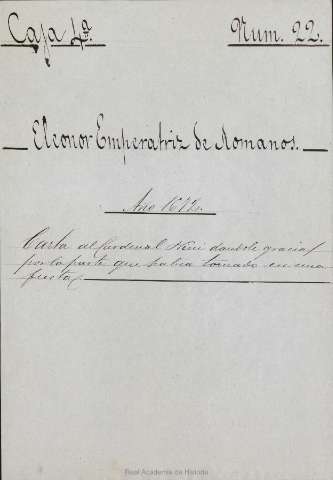 Caja 4ª. Num. 22.
Eleonor Emperatriz de Romanos.
Año 1672.
Carta al Cardenal Neri dandole gracias
por la parte que habia tomado en una
fiesta
Real Academia de Historia